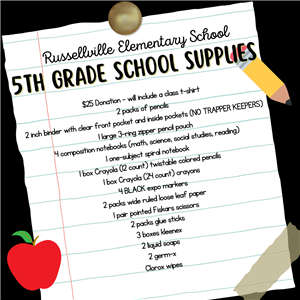 Russellville Elementary School
5TH GRADE SCHOOL SUPPLIES
$25 Donation - will include a class t-shirt
2 packs of pencils
2 inch binder with clear front pocket and inside pockets (NO TRAPPER KEEPERS)
1 large 3-ring zipper pencil pouch
4 composition notebooks (math, science, social studies, reading)
1 one-subject spiral notebook
1 box Crayola (12 count) twistable colored pencils
1 box Crayola (24 count) crayons
4 BLACK expo markers
2 packs wide ruled loose leaf paper
1 pair pointed Fiskars scissors
2 packs glue sticks
3 boxes kleenex
2 liquid soaps
2 germ-x
Clorox wipes